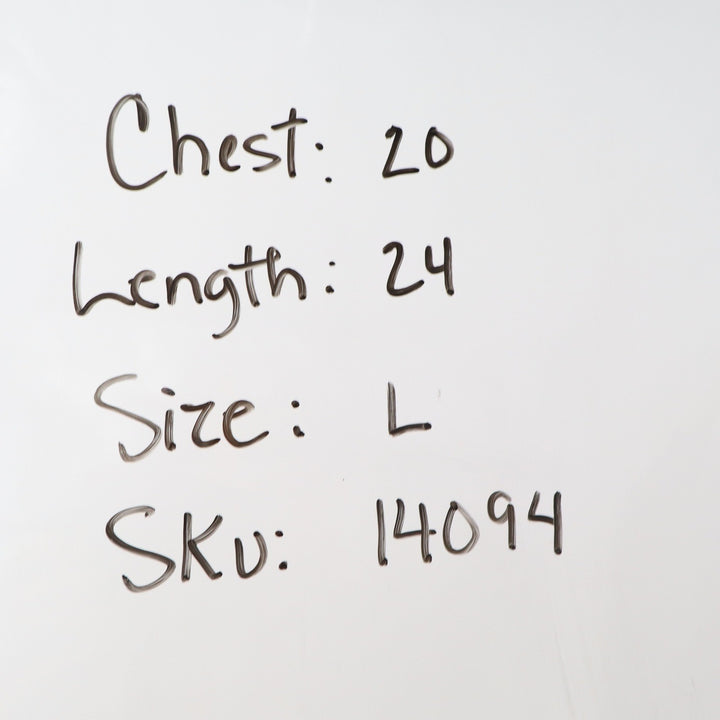 Chest: 20
Length: 24
Size: L
SKU: 14094